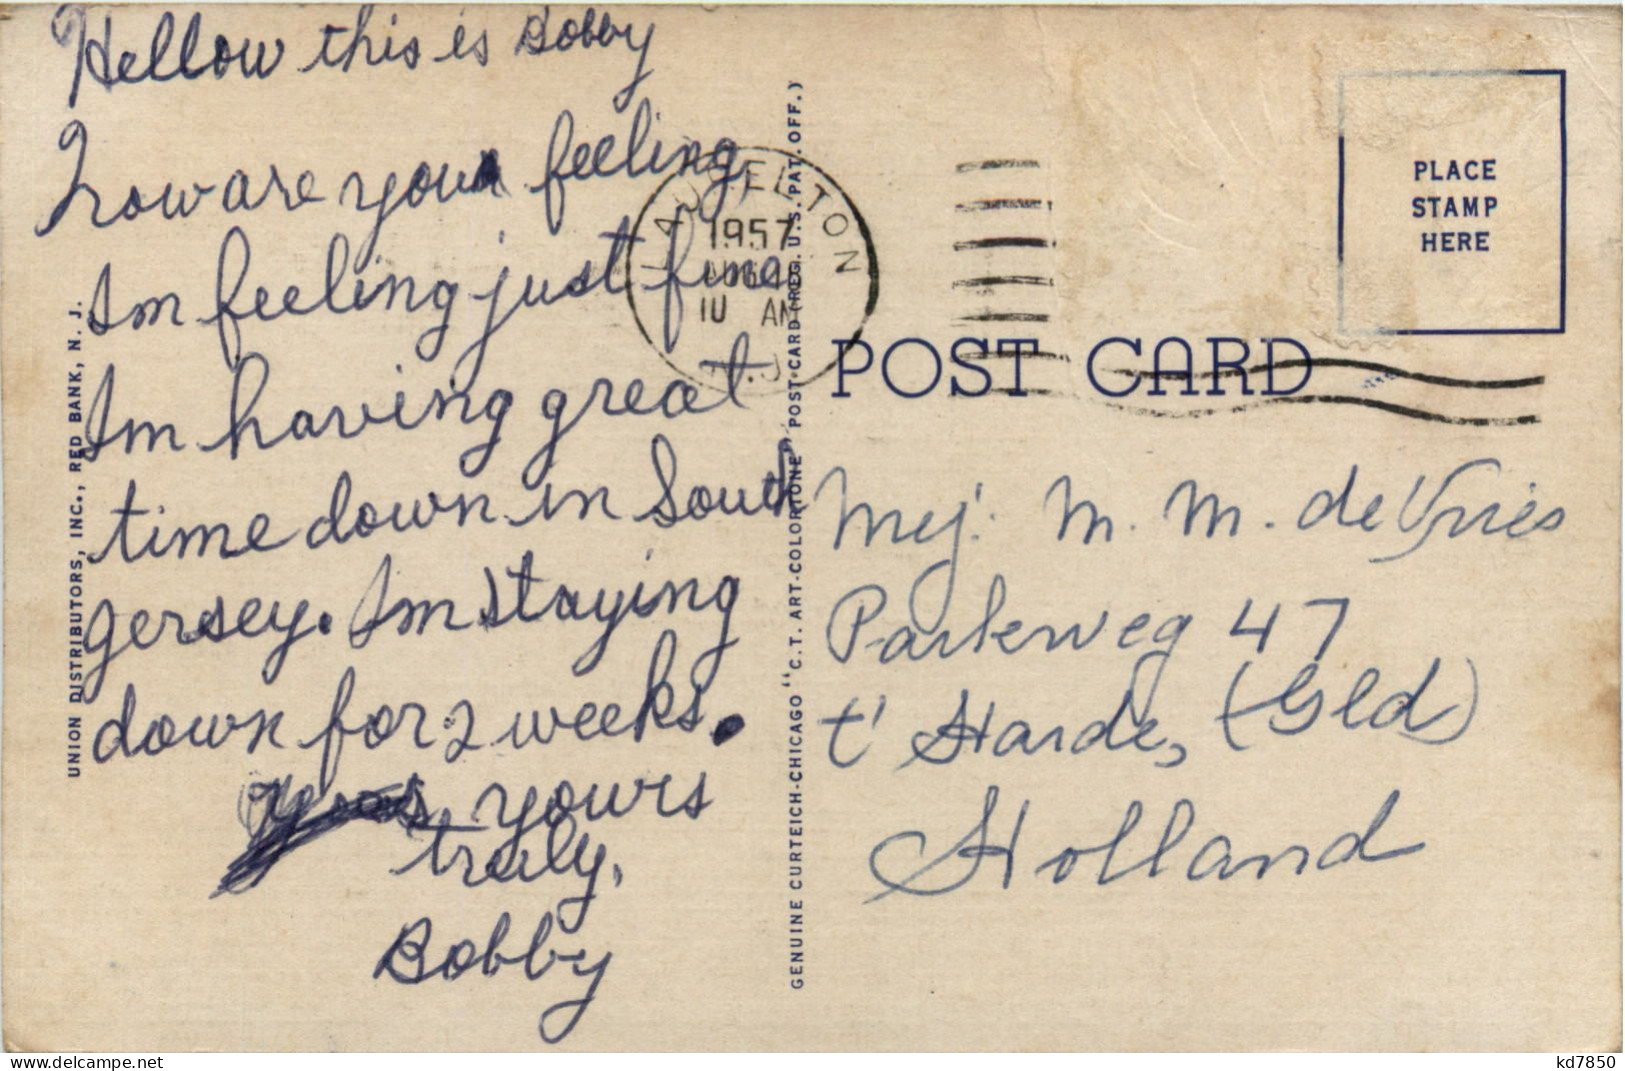 Hellow this is Bobby
how are you feeling
Im feeling just fine
Im having great
time down in South
gersey. Im staying
down for 2 weeks.
yours
truly,
Bobby
UNION DISTRIBUTORS, INC., RED BANK, N. J.
GENUINE CURTEICH-CHICAGO "C. T. ART-COLORTONE" POST CARD (REG. U. S. PAT. OFF.)
LAURELTON
1957
10 AM
N.J.
PLACE
STAMP
HERE
POST CARD
Mej. M. M. de Vries
Parkweg 47
t' Harde, (Gld)
Holland
kd7850